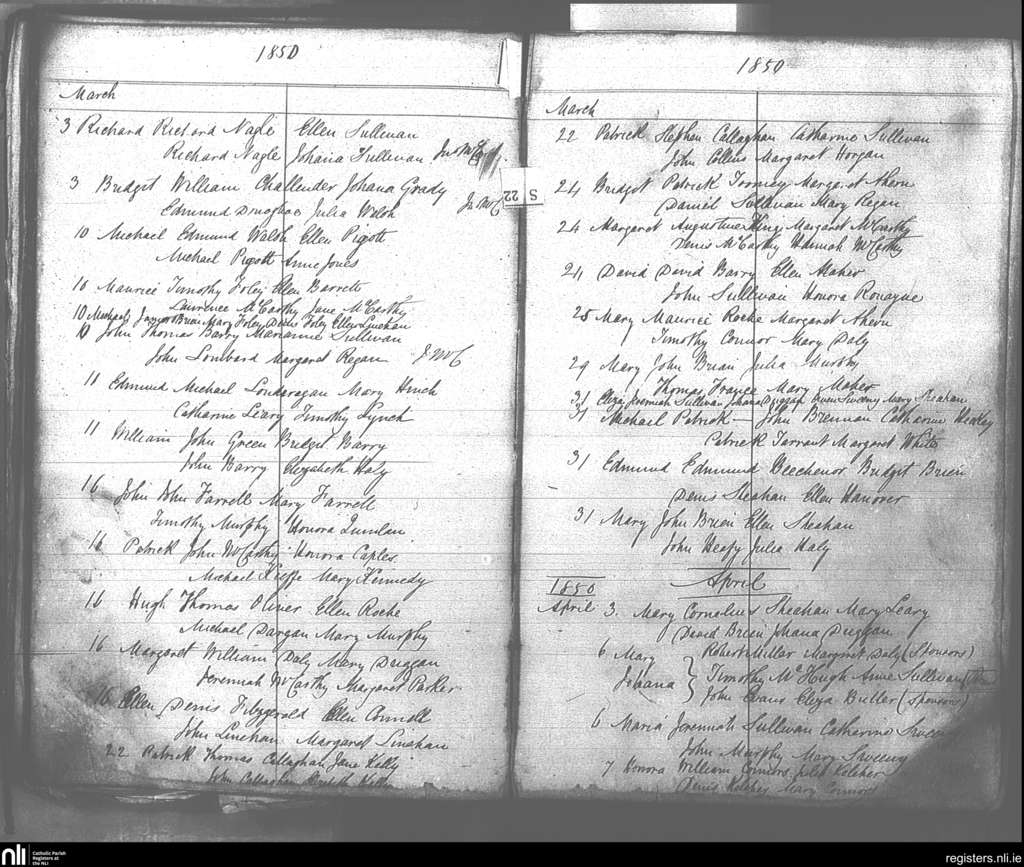 1850
March
3 Richard Richard Nagle Ellen Sullivan
Richard Nagle Johana Sullivan
3 Bridget William Challender Johana Grady
Edmund Donoghoe Julia Walsh Jn McC
10 Michael Edmund Walsh Ellen Pigott
Michael Pigott Anne Jones
10 Maurice Timothy Foley Ellen Barrett
Laurence McCarthy Jane McCarthy
10 Michael James Brien Mary Foley Denis Foley Ellen Linehan
10 John Thomas Barry Marianne Sullivan
John Lombard Margaret Regan J. McC
11 Edmund Michael Londeragan Mary
Catharine Leary Timothy Lynch
11 William John Green Bridget Barry
John Barry Elizabeth Haly
16 John John Farrell Mary Farrell
Timothy Murphy Honora Quinlan
16 Patrick John McCarthy Honora Caples
Michael Keeffe Mary Kennedy
16 Hugh Thomas Oliver Ellen Roche
Michael Dargan Mary Murphy
16 Margaret William Daly Mary Duggan
Jeremiah McCarthy Margaret Parker
16 Ellen Denis Fitzgerald Ellen Connell
John Linehan Margaret Linehan
22 Patrick Thomas Callaghan Jane Kelly
John Callaghan Kelly
S 22
1850
March
22 Patrick Stephen Callaghan Catharine Sullivan
John Collins Margaret Horgan
24 Bridget Patrick Toomey Margaret Ahern
Daniel Sullivan Mary Regan
24 Margaret Augustine King Margaret McCarthy
Denis McCarthy Hannah McCarthy
24 David David Barry Ellen Maher
John Sullivan Honora Ronayne
25 Mary Maurice Roche Margaret Ahern
Timothy Connor Mary Daly
29 Mary John Brien Julia Murphy
Thomas France Mary Maher
31 Eliza Jeremiah Sullivan Johana Duggan Owen Sweeny Mary Sheahan
31 Michael Patrick — John Brennan Catharine Healey
Patrick Tarrant Margaret White
31 Edmund Edmund Beechenor Bridget Brien
Denis Sheahan Ellen Hanover
31 Mary John Brien Ellen Sheahan
John Heafy Julia Haly
April
1850
April 3. Mary Cornelius Sheahan Mary Leary
David Brien Johana Duggan
6 Mary Robert Miller Margaret Daly (Sponsors)
Johana } Timothy McHugh Anne Sullivan
John Evans Eliza Butler (Sponsors)
6 Maria Jeremiah Sullivan Catharine
John Murphy Mary Sweeny
7 Honora William Connors Julia Kelcher
Denis Kelcher Mary Connors
nli Catholic Parish
Registers at
the NLI
registers.nli.ie